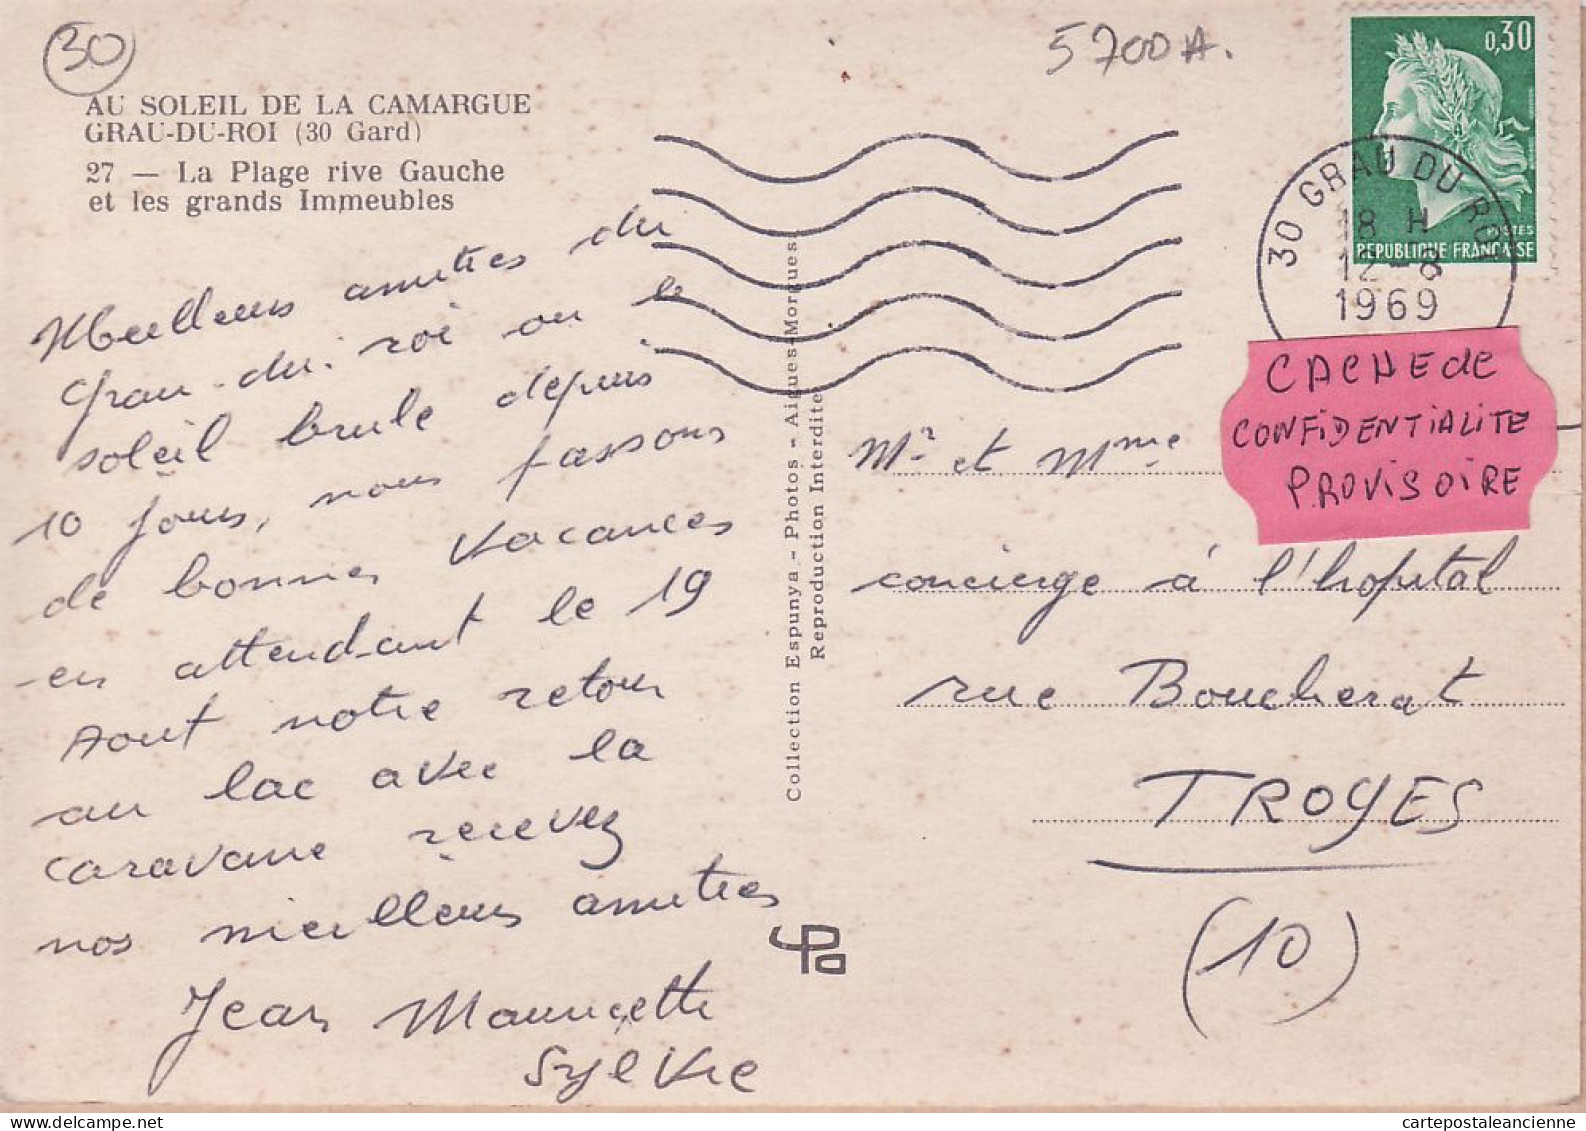 30
5700A.
AU SOLEIL DE LA CAMARGUE
GRAU-DU-ROI (30 Gard)
27 — La Plage rive Gauche
et les grands Immeubles
0,30
POSTES
REPUBLIQUE FRANÇAISE
30 GRAU DU ROI
18 H
12-8
1969
CACHE de
CONFIDENTIALITE
PROVISOIRE
Meilleurs amitiés du
Grau-du-roi ou le
soleil brule depuis
10 jours, nous passons
de bonnes vacances
en attendant le 19
Aout notre retour
au lac avec la
caravane recevez
nos meilleurs amitiés
Jean Mauricette
Sylvie
Collection Espunya - Photos - Aigues-Morgues
Reproduction Interdite
Mr et Mme
concierge à l'hopital
rue Boucherat
TROYES
(10)
cartepostaleancienne